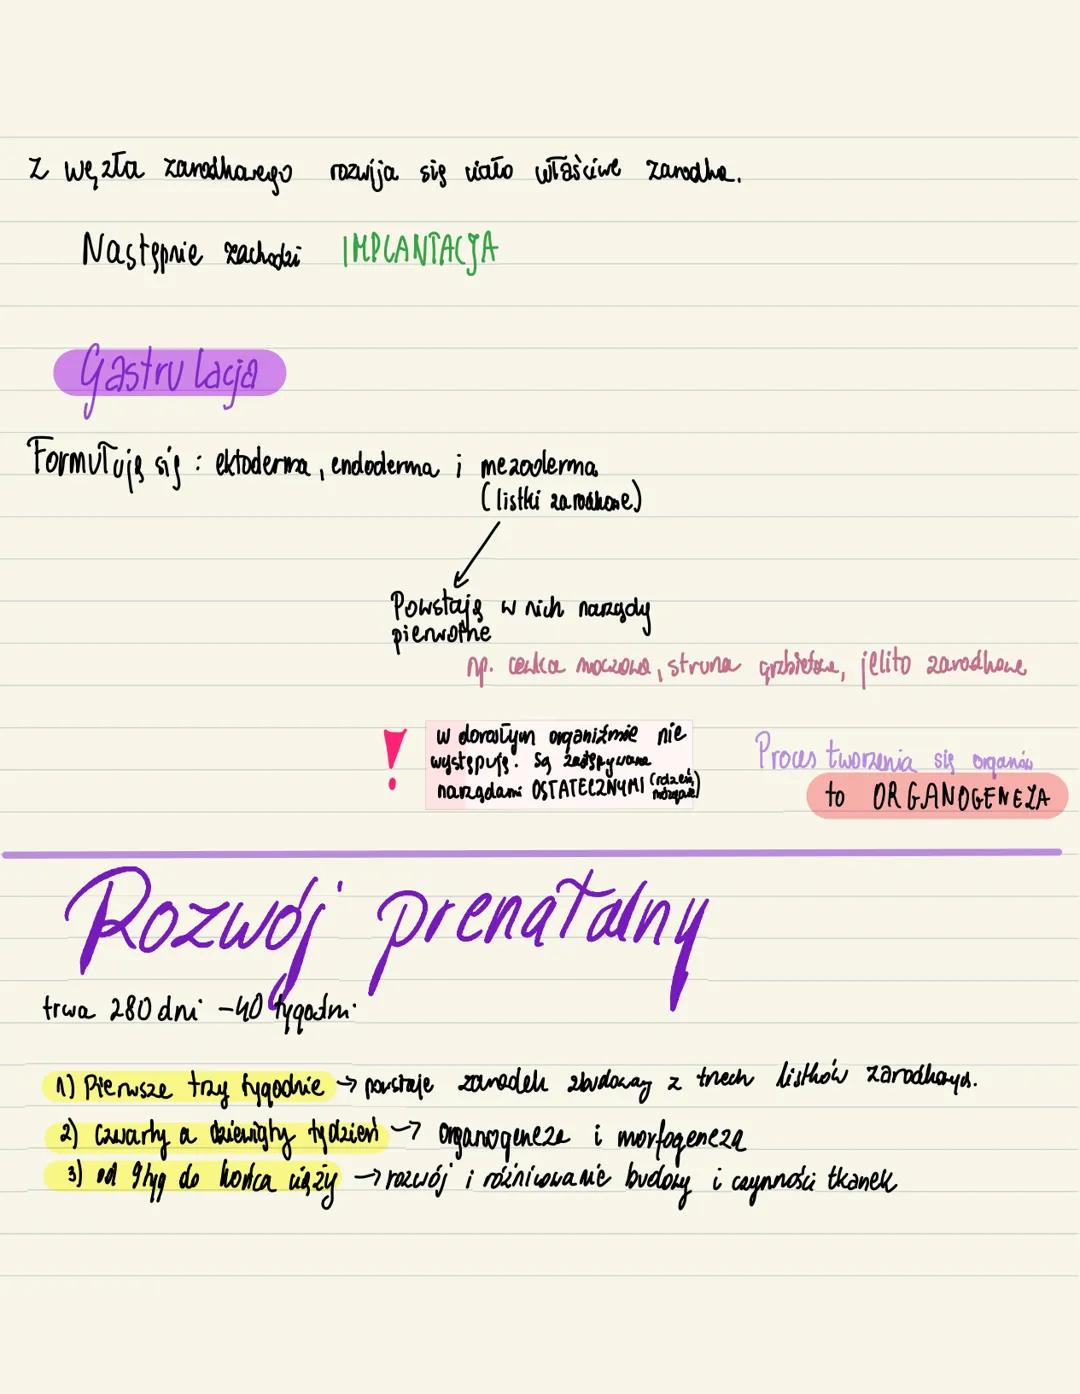 Z węzła zarodkowego rozwija się ciało właściwe zarodka.
Następnie zachodzi IMPLANTACJA
Gastrulacja
Formułują się : ektoderma, endoderma i mezoderma
(listki zarodkowe)
Powstają w nich narządy
pierwotne
np. cewka moczowa, struna grzbietowa, jelito zarodkowe
! w dorosłym organizmie nie
występują. Są zastępywane
narządami OSTATECZNYMI (rdzeń,
mózgowie)
Proces tworzenia się organów
to ORGANOGENEZA
Rozwój prenatalny
trwa 280 dni - 40 tygodni.
1) Pierwsze trzy tygodnie → powstaje zarodek zbudowany z trzech listków zarodkowych.
2) czwarty a dziewiąty tydzień → organogeneza i morfogeneza
3) od 9tyg do końca ciąży → rozwój i różnicowanie budowy i czynności tkanek